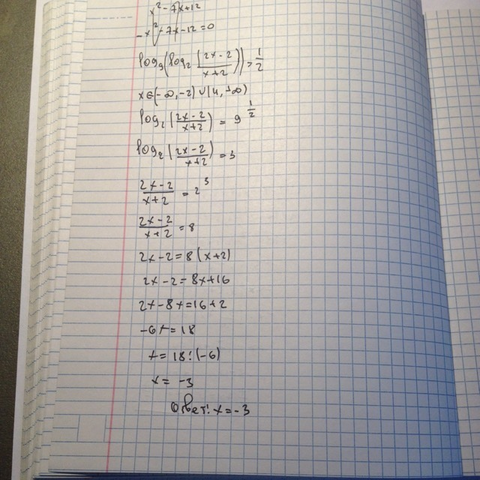 x²-7x+12
-x²-7x-12=0
log₉(log₂(2x-2/x+2))=1/2
x∈(-∞,-2)∪(4,+∞)
log₂(2x-2/x+2)=9^1/2
log₂(2x-2/x+2)=3
2x-2/x+2=2³
2x-2/x+2=8
2x-2=8(x+2)
2x-2=8x+16
2x-8x=16+2
-6x=18
x=18:(-6)
x=-3
Ответ: x=-3